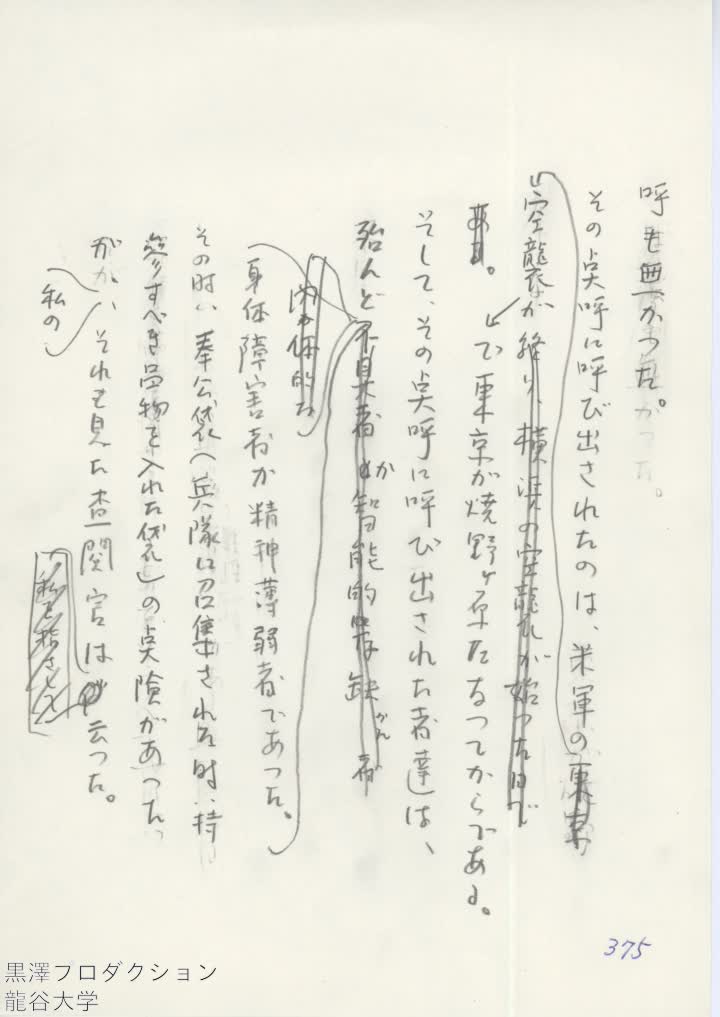 呼も無かった。
その点呼に呼び出されたのは、米軍の東京
空襲が終り、横浜の空襲が始った日で
ある。
で東京が焼野ヶ原になつてからである。
そして、その点呼に呼び出された者達は、
殆んど不具者か智能的欠缺者
かん
肉体的な
身体障害者か精神薄弱者であった。
その時、奉公袋へ兵隊に召集された時、持
参すべき品物を入れた袋」の点険があった
がが、それを見た査閲官は云った。
私の
私を指さして
375
黒澤プロダクション
龍谷大学